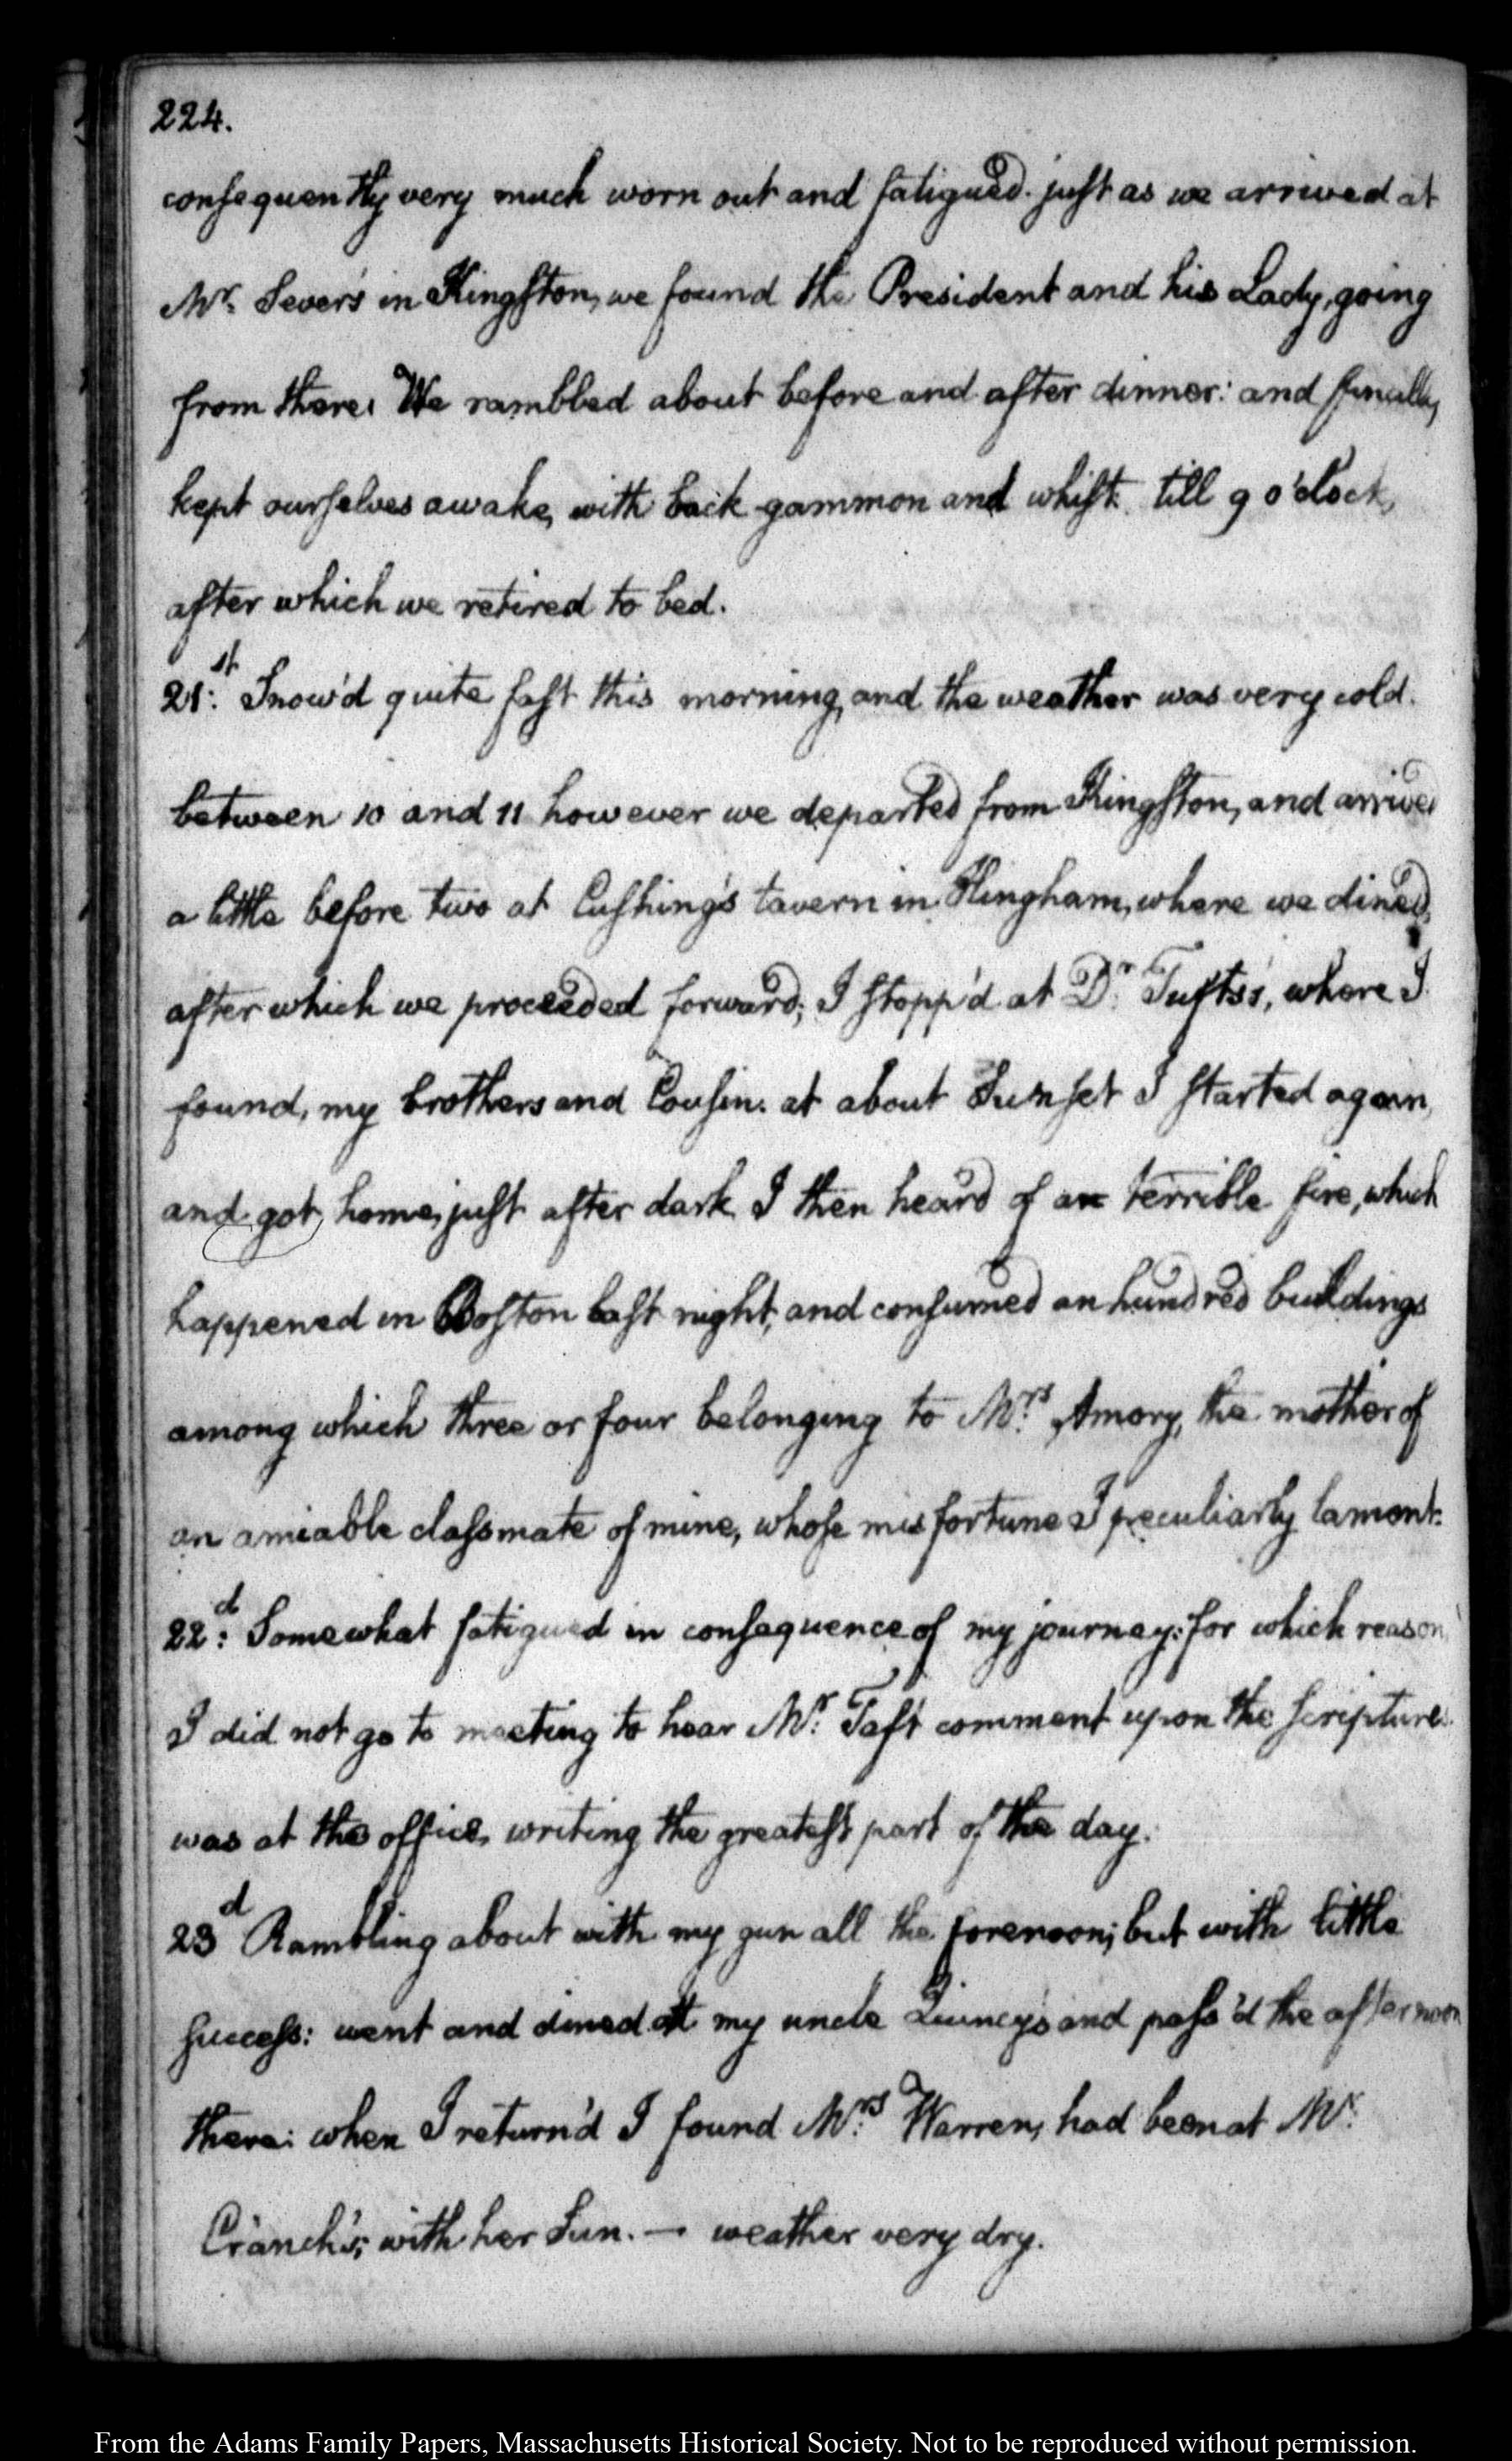 224.
consequently very much worn out and fatigued. just as we arrived at
Mr. Sever's in Kingston, we found the President and his Lady, going
from there. We rambled about before and after dinner: and finally,
kept ourselves awake, with back-gammon and whist till 9 o'clock,
after which we retired to bed.
21:st Snow'd quite fast this morning, and the weather was very cold.
between 10 and 11 however we departed from Kingston, and arrived
a little before two at Cushing's tavern in Hingham, where we dined,
after which we proceeded forward; I stopp'd at Dr. Tufts's, where I
found, my brothers and Cousin. at about Sunset I started again,
and got home, just after dark. I then heard of a terrible fire, which
happened in Boston last night, and consumed an hundred buildings
among which three or four belonging to Mrs. Amory, the mother of
an amiable classmate of mine, whose misfortune I peculiarly lament.
22:d Somewhat fatigued in consequence of my journey: for which reason,
I did not go to meeting to hear Mr. Taft comment upon the scriptures.
was at the office, writing the greatest part of the day.
23d Rambling about with my gun all the forenoon; but with little
success: went and dined at my uncle Quincy's and pass'd the afternoon
there: when I return'd I found Mrs. Warren, had been at Mr.
Cranch's; with her Sun. — weather very dry.
From the Adams Family Papers, Massachusetts Historical Society. Not to be reproduced without permission.